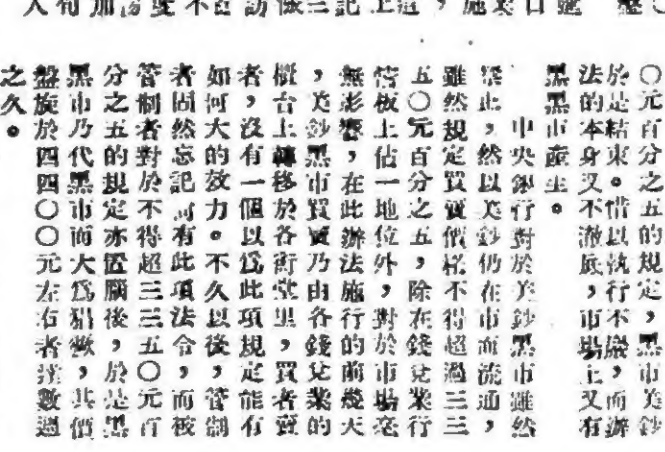 〇元百分之五的規定,黑市美鈔
於是結束。惜以執行不嚴,而辦
法的本身又不澈底,市場上又有
黑黑市產生。
中央銀行對於美鈔黑市雖然
禁止,然以美鈔仍在市面流通,
雖然規定買賣價格不得超過三三
五〇元百分之五,除在錢兌業行
情板上佔一地位外,對於市場毫
無影響,在此辦法施行的前幾天
,美鈔黑市買賣乃由各錢兌業的
櫃台上轉移於各衖堂里,買者賣
者,沒有一個以爲此項規定能有
如何大的效力。不久以後,管制
者固然忘記尙有此項法令,而被
管制者對於不得超三三五〇元百
分之五的規定亦置腦後,於是黑
黑市乃代黑市而大爲猖獗,其價
盤旋於四四〇〇元左右者數週
之久。